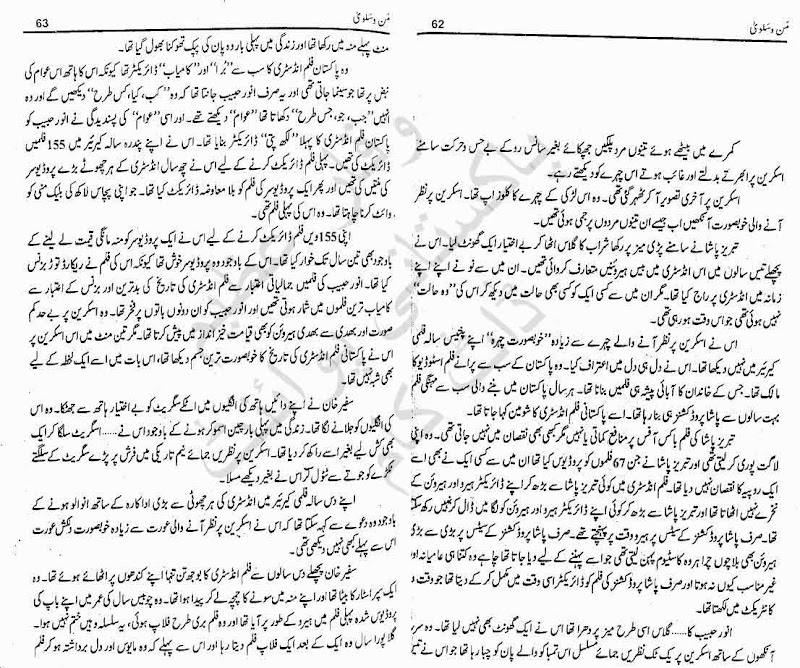 من و سلویٰ
62
کمرے میں بیٹھے ہوئے تینوں مرد پلکیں جھپکائے بغیر سانس روکے بے حس و حرکت سامنے
اسکرین پر ابھرتے بدلتے اور غائب ہوتے اس چہرے کو دیکھتے رہے۔
اسکرین پر آخری تصویر آ کر ٹھہر گئی تھی۔ وہ اس لڑکی کے چہرے کا کلوز اپ تھا۔ اسکرین پر نظر
آنے والی خوبصورت آنکھیں اب جیسے ان تینوں مردوں پر جمی ہوئی تھیں۔
تبریز پاشا نے سامنے پڑی میز پر رکھا شراب کا گلاس اٹھا کر بے اختیار ایک گھونٹ لیا۔ اس نے
پچھلے تیس سالوں میں اس انڈسٹری میں بیس ہیروئنیں متعارف کروائی تھیں۔ ان میں سے نو نے اپنے اپنے
زمانہ میں انڈسٹری پر راج کیا تھا۔ مگر ان میں سے کسی ایک کو کسی بھی حالت میں دیکھ کر اس کی ”وہ حالت“
نہیں ہوئی تھی جو اس وقت ہو رہی تھی۔
اس نے اسکرین پر نظر آنے والے چہرے سے زیادہ ”خوبصورت چہرہ“ اپنے پینتیس سالہ فلمی
کیریئر میں نہیں دیکھا تھا۔ اس نے دل ہی دل میں اعتراف کیا۔ وہ پاکستان کے سب سے پرانے فلم اسٹوڈیو کا
مالک تھا۔ جس کے خاندان کا آبائی پیشہ ہی فلمیں بنانا تھا۔ ہر سال پاکستان میں بننے والی سب سے مہنگی فلم
بہت سالوں سے پاشا پروڈکشنز ہی بنا رہا تھا۔ اسے پاکستانی فلم انڈسٹری کا شو مین کہا جاتا تھا۔
تبریز پاشا کی فلم باکس آفس پر منافع کماتی یا نہیں مگر کبھی بھی نقصان میں نہیں جاتی تھی۔ وہ اپنی
لاگت پوری کر لیتی تھی اور تبریز پاشا نے جن 67 فلموں کو پروڈیوس کیا تھا ان میں سے کسی ایک نے بھی اسے
ایک روپیہ کا نقصان نہیں دیا تھا۔ فلم انڈسٹری میں کوئی تبریز پاشا سے بڑھ کر اپنے ڈائریکٹر ہیرو اور ہیروئن کے
نخرے نہیں اٹھاتا تھا اور تبریز پاشا سے بڑھ کر کوئی اپنے ڈائریکٹر ہیرو اور ہیروئن کو لگا میں ڈال کر نہیں رکھ سکتا
تھا۔ صرف پاشا پروڈکشنز کے سیٹس پر ہیرو وقت پر پہنچتے تھے۔ صرف پاشا پروڈکشنز کے سیٹس پر بڑی سے بڑی
ہیروئن بھی بلا چوں چرا ہر وہ کاسٹیوم پہن لیتی تھی جو اسے پہننے کے لیے دیا جاتا تھا چاہے وہ کتنا ہی عامیانہ اور
غیر مناسب کیوں نہ ہوتا اور صرف پاشا پروڈکشنز کی فلم کو ڈائریکٹر اسی وقت میں مکمل کر کے دیتا تھا جو وقت وہ
کانٹریکٹ میں لکھتا تھا۔
انور حبیب کا...... گلاس اسی طرح میز پر دھرا تھا اس نے ایک گھونٹ بھی نہیں لیا تھا۔ وہ سرد
آنکھوں کے ساتھ اسکرین پر یک ٹک نظریں جمائے مسلسل اس تمباکو والے پان کو چبا رہا تھا جو اس نے تیس
من و سلویٰ
63
منٹ پہلے منہ میں رکھا تھا اور زندگی میں پہلی بار وہ پان کی پیک تھوکنا بھول گیا تھا۔
وہ پاکستان فلم انڈسٹری کا سب سے ”بُرا“ اور ”کامیاب“ ڈائریکٹر تھا کیونکہ اس کا ہاتھ اس عوام کی
نبض پر تھا جو سینما جاتی تھی اور یہ صرف انور حبیب جانتا تھا کہ وہ ”کب، کیا، کس طرح“ دیکھیں گے اور وہ
انہیں ”جب، جو، جس طرح“ دکھاتا تھا ”عوام“ دیکھتے تھے۔ اور اسی ”عوام“ کی پسندیدگی نے انور حبیب کو
پاکستان فلم انڈسٹری کا پہلا ”لکھ پتی“ ڈائریکٹر بنایا تھا۔ اس نے اپنے پندرہ سالہ کیریئر میں 155 فلمیں
ڈائریکٹ کی تھیں۔ پہلی فلم ڈائریکٹ کرنے کے لیے اس نے چھ سال انڈسٹری کے ہر چھوٹے بڑے پروڈیوسر
کی منتیں کی تھیں اور پھر ایک پروڈیوسر کی فلم کو بلا معاوضہ ڈائریکٹ کیا تھا۔ جو اپنی پچاس لاکھ کی بلیک منی کو
وائٹ کرنا چاہتا تھا۔ وہ اس کی پہلی فلم تھی۔
اپنی 155 ویں فلم ڈائریکٹ کرنے کے لیے اس نے ایک پروڈیوسر کو منہ مانگی قیمت لے لینے کے
باوجود بھی تین سال تک خوار کیا تھا۔ اس کے باوجود وہ پروڈیوسر خوش تھا کیونکہ اس کی فلم نے ریکارڈ توڑ بزنس
کیا تھا۔ انور حبیب کی فلمیں جمالیاتی اعتبار سے فلم انڈسٹری کی تاریخ کی بدترین اور بزنس کے اعتبار سے
کامیاب ترین فلموں میں شمار ہوتی تھیں اور انور حبیب کو ان دونوں باتوں پر فخر تھا۔ وہ اسکرین پر بے حد کم
صورت اور بھدی سے بھدی ہیروئن کو بھی قیامت خیز انداز میں پیش کرتا تھا۔ مگر تین منٹ میں اس اسکرین پر
اس نے پاکستانی فلم انڈسٹری کی تاریخ کا خوبصورت ترین جسم دیکھا تھا، اس بات میں اسے ایک لحظہ کے لیے
بھی شبہ نہیں تھا۔
سفیر خان نے اپنے دائیں ہاتھ کی انگلیوں میں اٹکے سگریٹ کو بے اختیار ہاتھ سے جھٹکا۔ وہ اس
کی انگلیوں کو جلانے لگا تھا۔ زندگی میں پہلی بار چین اسموکر ہونے کے باوجود اس نے...... سگریٹ سلگا کر ایک
بھی کش لیے بغیر اسے راکھ کر دیا تھا۔ اسکرین پر نظریں جمائے نیم تاریکی میں فرش پر پڑے سگریٹ کے سلگتے
ٹکڑے کو جوتے سے ٹٹول کر اس نے بغیر دیکھے مسلا۔
اپنے دس سالہ فلمی کیریئر میں انڈسٹری کی ہر چھوٹی سے بڑی اداکارہ کے ساتھ انوالو ہونے کے
باوجود وہ دعوے سے کہہ سکتا تھا کہ اس نے اسکرین پر نظر آنے والی عورت سے زیادہ خوبصورت دلکش عورت
اس سے پہلے کبھی نہیں دیکھی تھی۔
سفیر خان پچھلے دس سالوں سے فلم انڈسٹری کا بوجھ تن تنہا اپنے کندھوں پر اٹھائے ہوئے تھا۔ وہ
ایک سپر اسٹار کا بیٹا تھا اور اپنے منہ میں سونے کا چمچہ لے کر پیدا ہوا تھا۔ وہ چوبیس سال کی عمر میں اپنے باپ کی
پروڈیوس شدہ پہلی فلم میں ہیرو کے طور پر آیا تھا اور وہ فلم بری طرح فلاپ ہوئی، یہ سلسلہ وہیں ختم نہیں ہوا۔
اگلا پورا سال وہ ایک کے بعد ایک فلاپ فلم دیتا رہا اور اس سے پہلے کہ وہ مایوس اور دل برداشتہ ہو کر فلم